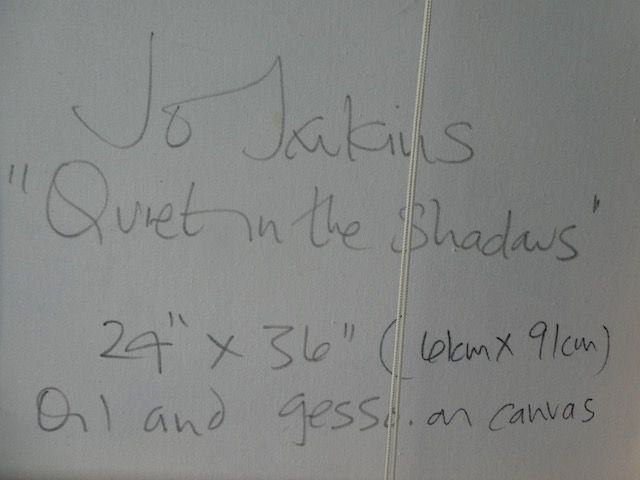 Jo Jenkins
"Quiet in the Shadows"
24" x 36" (61cm x 91cm)
Oil and gesso on canvas